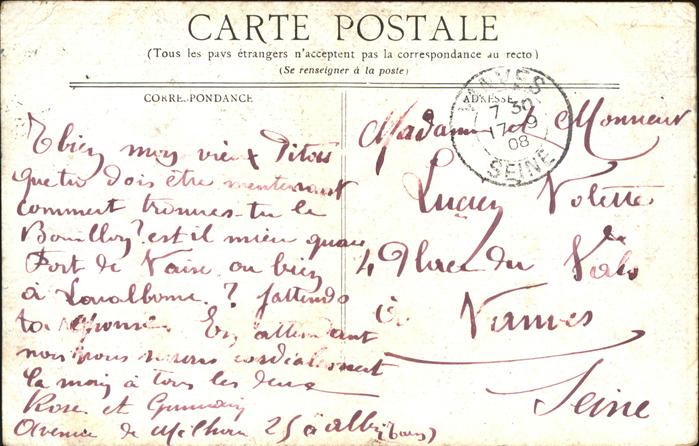 CARTE POSTALE
(Tous les pays étrangers n'acceptent pas la correspondance au recto)
(Se renseigner à la poste)
CORRESPONDANCE
ADRESSE
VANVES
7 30
17 9
08
SEINE
Eh bien mon vieux Pitois
que tu dois être maintenant
comment trouves-tu le
Bouillon? est il mieu quau
Fort de Vaise ou bien
à ? J'attends
ta réponse En attendant
nous vous serrons cordialement
la main à tous les deux
Rose et Germain
Avenue de 25 à
Madame et Monsieur
Lucien Volette
4 Place du Val
à Vanves
Seine